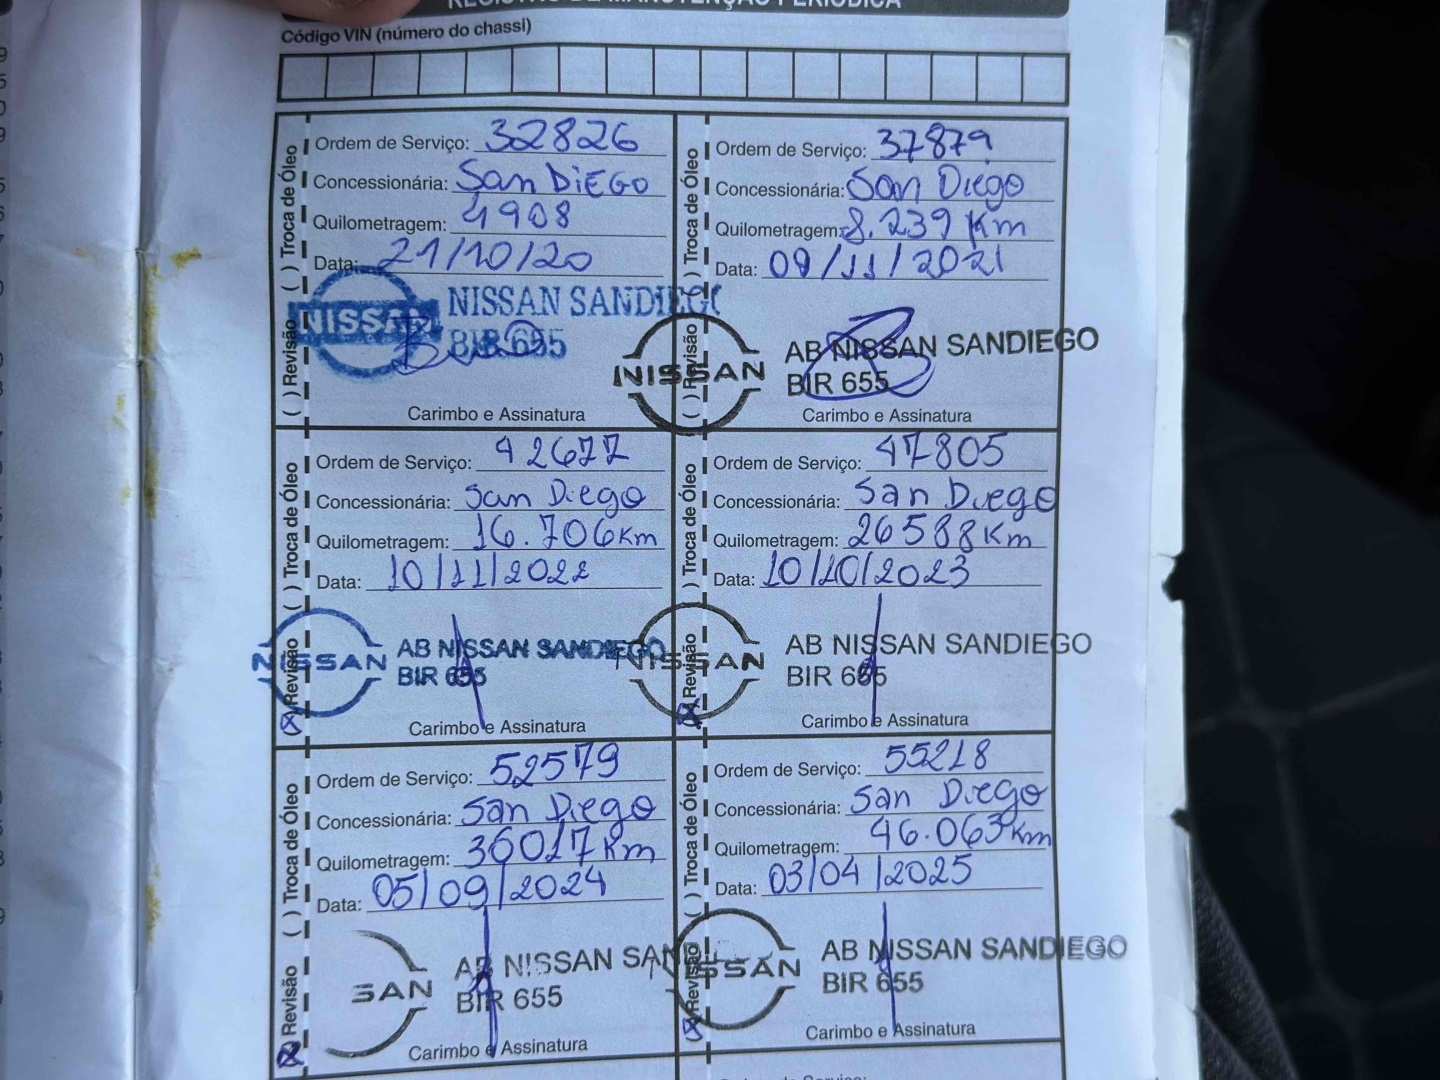 REGISTRO DE MANUTENÇÃO PERIÓDICA
Código VIN (número do chassi)
( ) Troca de Óleo
( ) Revisão
Ordem de Serviço: 32826
Concessionária: San DiEGO
Quilometragem: 4908
Data: 21/10/20
NISSAN
NISSAN SANDIEGO
BIR 655
Carimbo e Assinatura
( ) Troca de Óleo
( ) Revisão
Ordem de Serviço: 37879
Concessionária: San Diego
Quilometragem: 8.239 Km
Data: 09/11/2021
NISSAN
AB NISSAN SANDIEGO
BIR 655
Carimbo e Assinatura
( ) Troca de Óleo
(X) Revisão
Ordem de Serviço: 42677
Concessionária: San Diego
Quilometragem: 16.706 Km
Data: 10/11/2022
NISSAN
AB NISSAN SANDIEGO
BIR 655
Carimbo e Assinatura
( ) Troca de Óleo
(X) Revisão
Ordem de Serviço: 47805
Concessionária: San Diego
Quilometragem: 26588 Km
Data: 10/10/2023
NISSAN
AB NISSAN SANDIEGO
BIR 655
Carimbo e Assinatura
( ) Troca de Óleo
(X) Revisão
Ordem de Serviço: 52579
Concessionária: San Diego
Quilometragem: 36017 Km
Data: 05/09/2024
SAN
AB NISSAN SAN
BIR 655
Carimbo e Assinatura
( ) Troca de Óleo
(X) Revisão
Ordem de Serviço: 55218
Concessionária: San Diego
Quilometragem: 46.063 Km
Data: 03/04/2025
NISSAN
AB NISSAN SANDIEGO
BIR 655
Carimbo e Assinatura
Ordem de Serviço: